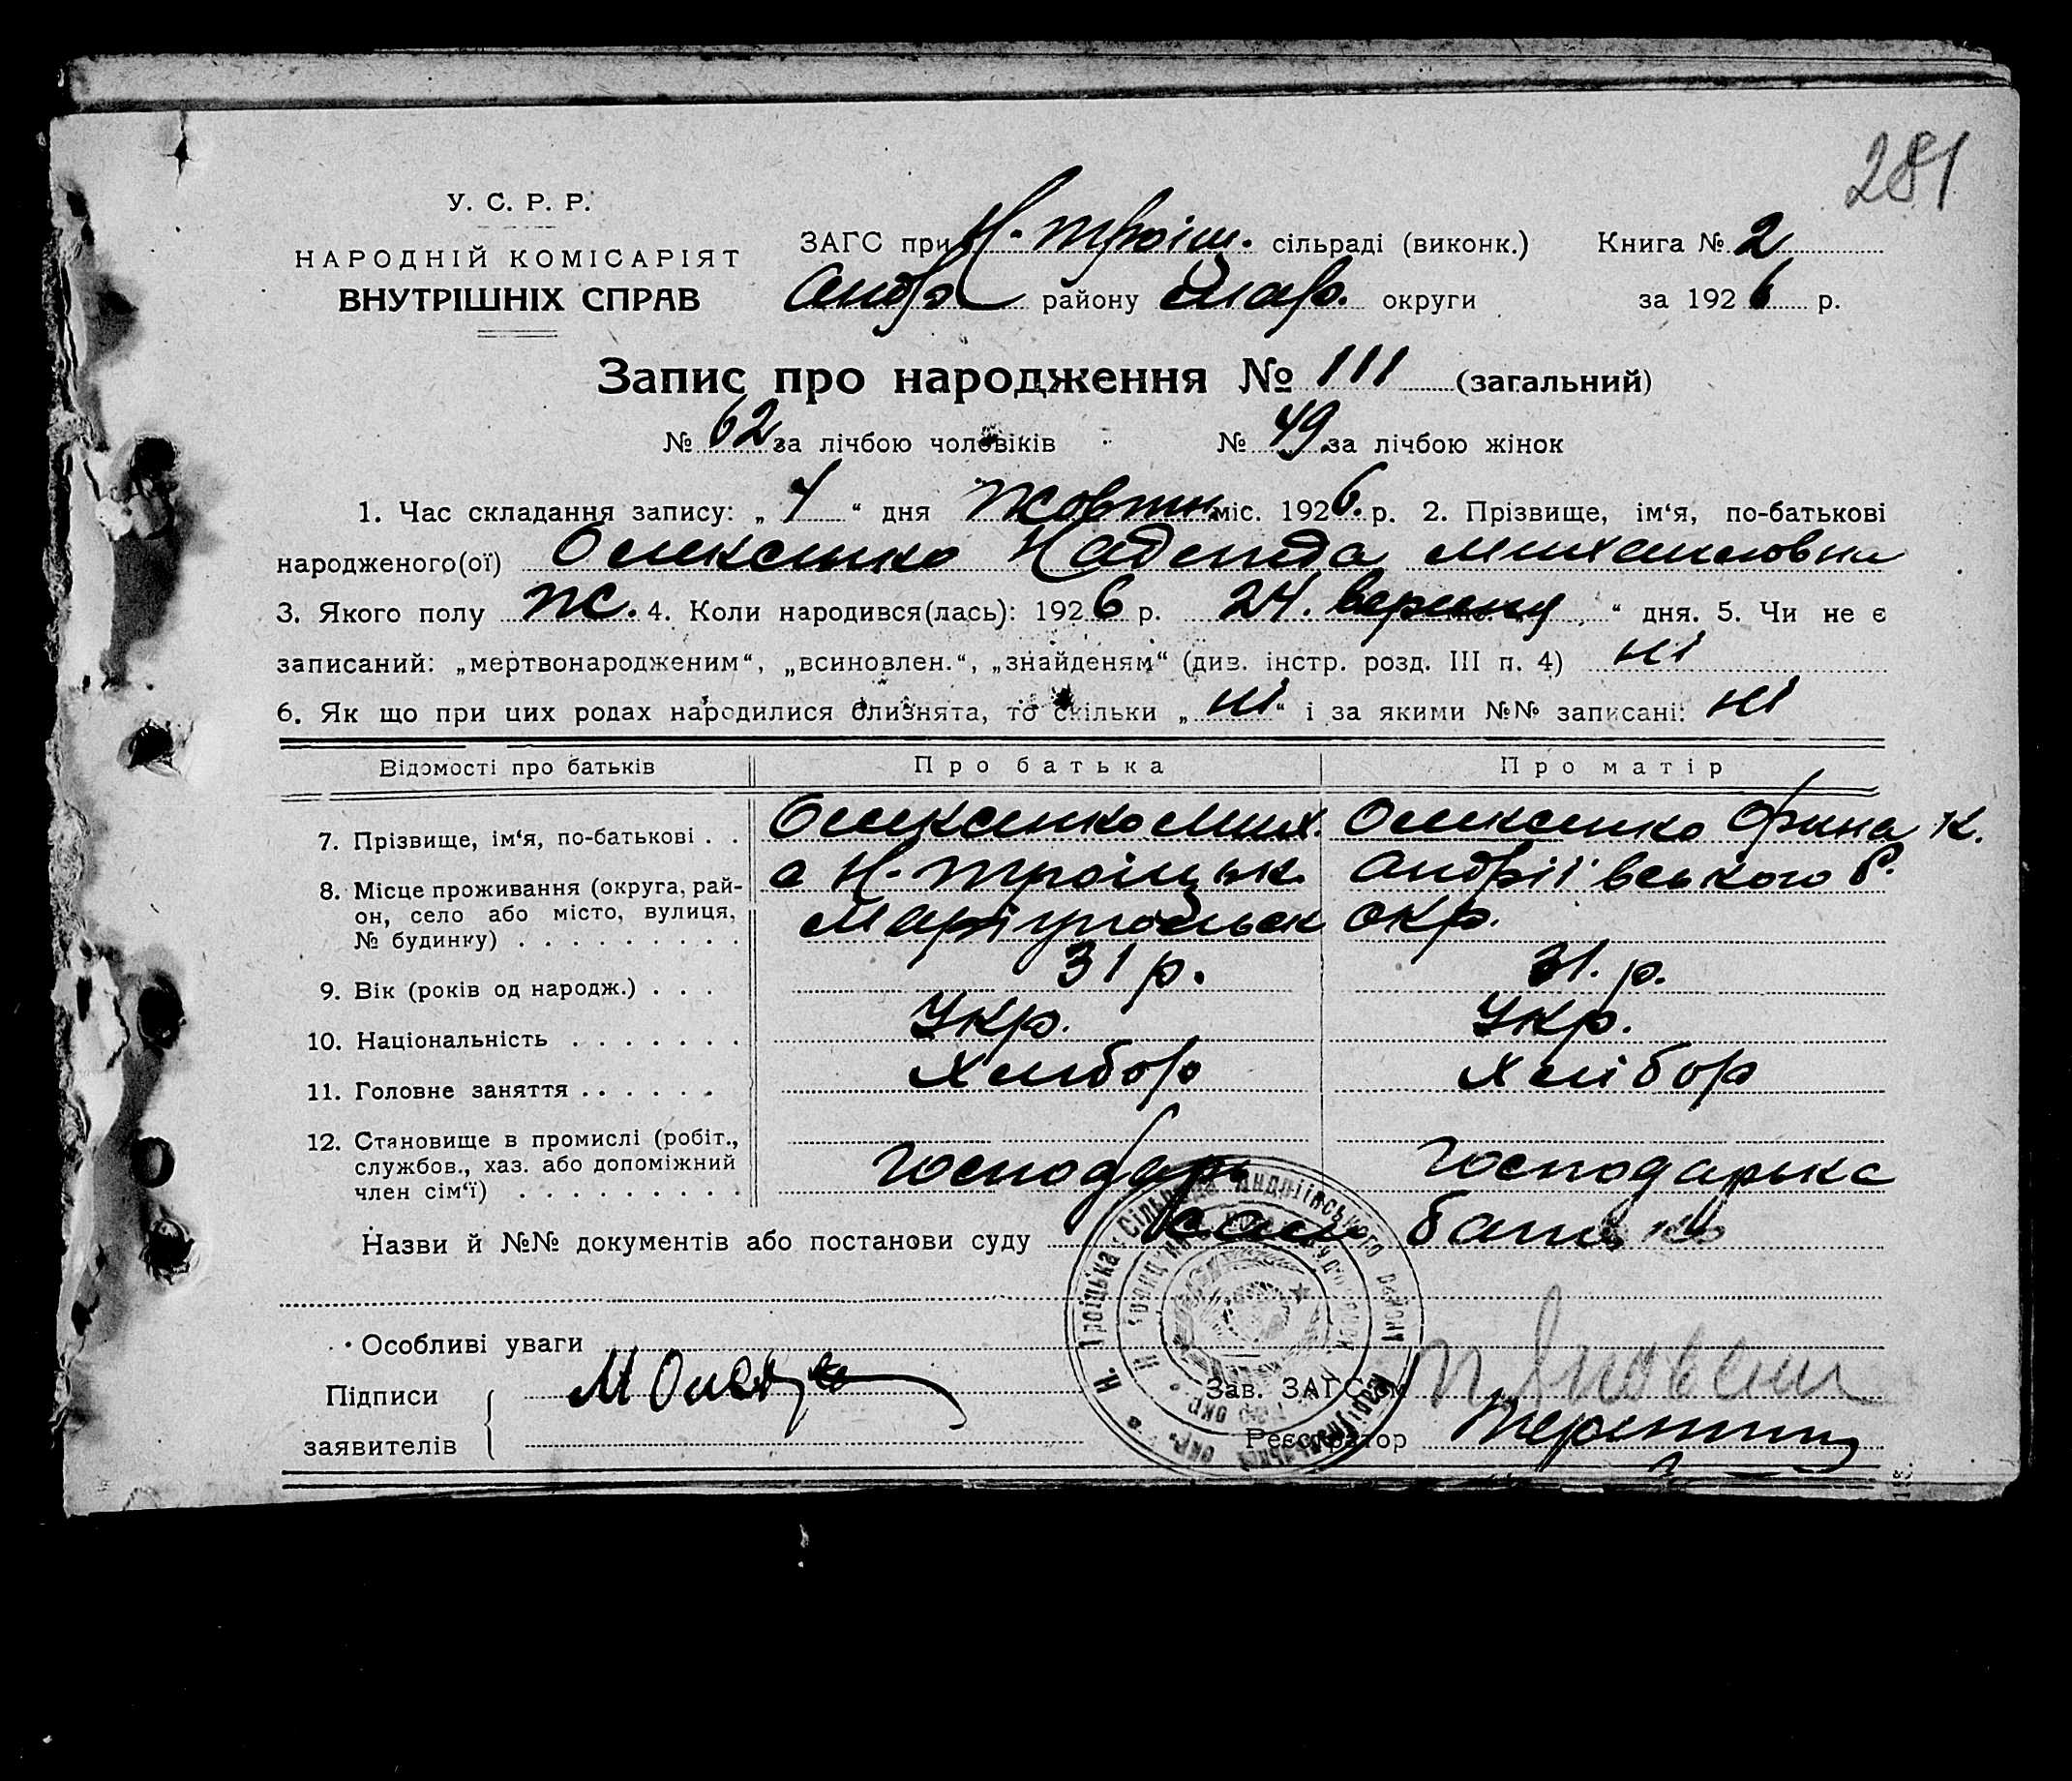 281
У. С. Р. Р.
НАРОДНІЙ КОМІСАРІЯТ
ВНУТРІШНІХ СПРАВ
ЗАГС при Н. Троіц. сільраді (виконк.) Книга № 2
Андр районy Мар. округи за 1926 р.
Запис про народження № 111 (загальний)
№ 62 за лічбою чоловіків № 49 за лічбою жінок
1. Час складання запису: „ 4 “ дня Жовтн міс. 1926 р. 2. Прізвище, ім‘я, по-батькові
народженого(ої) Олексенко Надежда Михаиловна
3. Якого полу Ж. 4. Коли народився(лась): 1926 р. 24. вересня “ дня. 5. Чи не є
записаний: „мертвонародженим“, „всиновлен.“, „знайденям“ (див. інстр. розд. III п. 4) ні
6. Як що при цих родах народилися близнята, то скільки „ ні “ і за якими №№ записані: ні
Відомості про батьків Про батька Про матір
7. Прізвище, ім‘я, по-батькові . . Олексенко Мих. Олексенко Орина К.
8. Місце проживання (округа, рай- с Н. Троіцьк. Андріівського р.
он, село або місто, вулиця, Маріупольськ окр.
№ будинку) . . . . . . . . .
9. Вік (років од народж.) . . . 31 р. 31. р.
10. Національність . . . . . . . Укр. Укр.
11. Головне заняття . . . . . . Хлибор Хлібор
12. Становище в промислі (робіт.,
службов., хаз. або допоміжний Господарь Господарька
член сім‘ї) . . . . . . . . .
Назви й №№ документів або постанови суду сам батько
Особливі уваги
Підписи Зав. ЗАГС‘ом
заявителів Реєстратор
Н. Троіцька Сільрада Андріівського району Маріупільської окр.